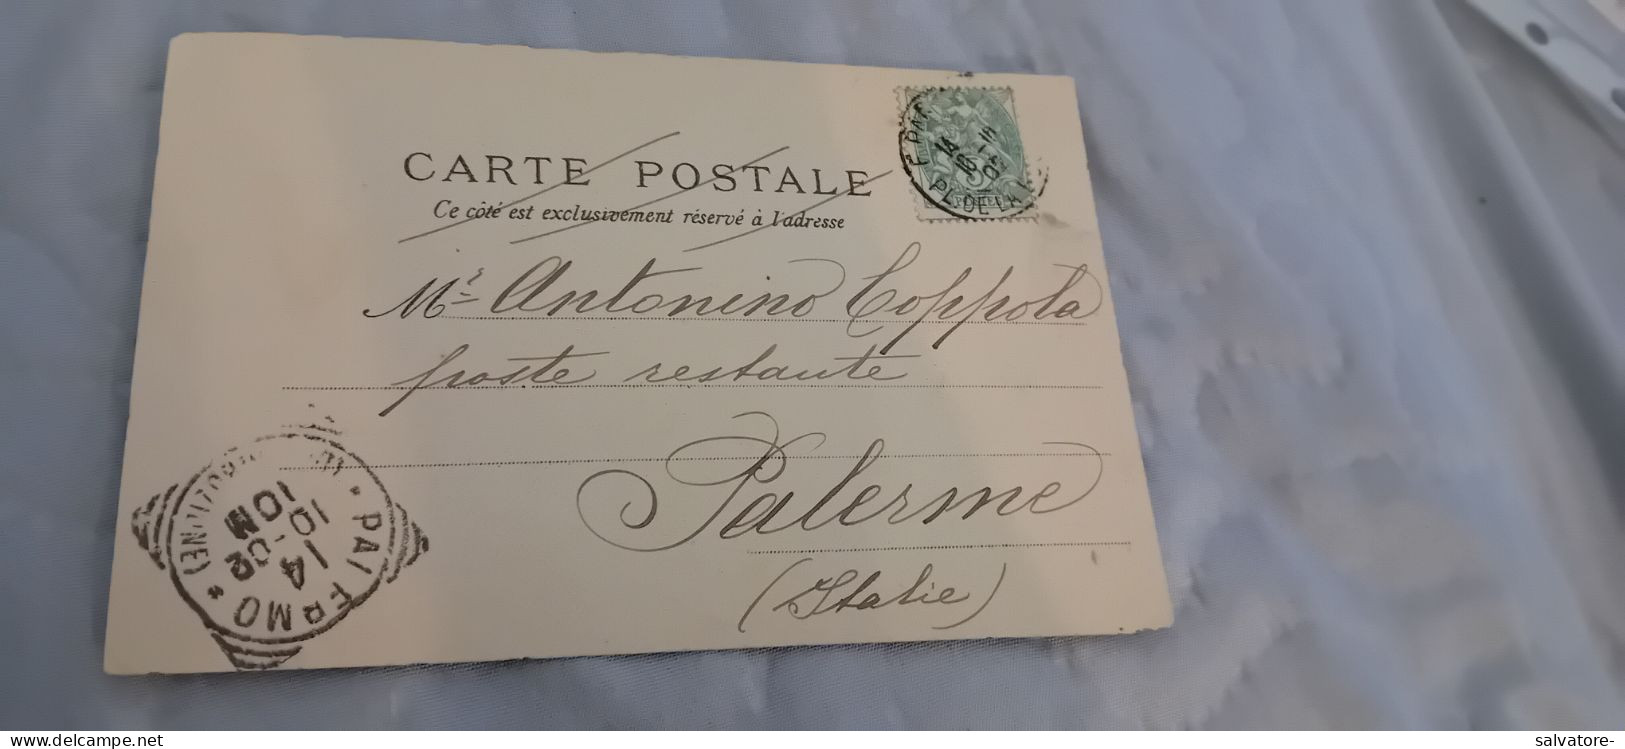 CARTE POSTALE
Ce côté est exclusivement réservé à l'adresse
Mr Antonino Coppola
poste restante
Palerme
(Italie)
PL. DE LA
POSTES
5
PALERMO
14
10-02
10M
salvatore-
www.delcampe.net